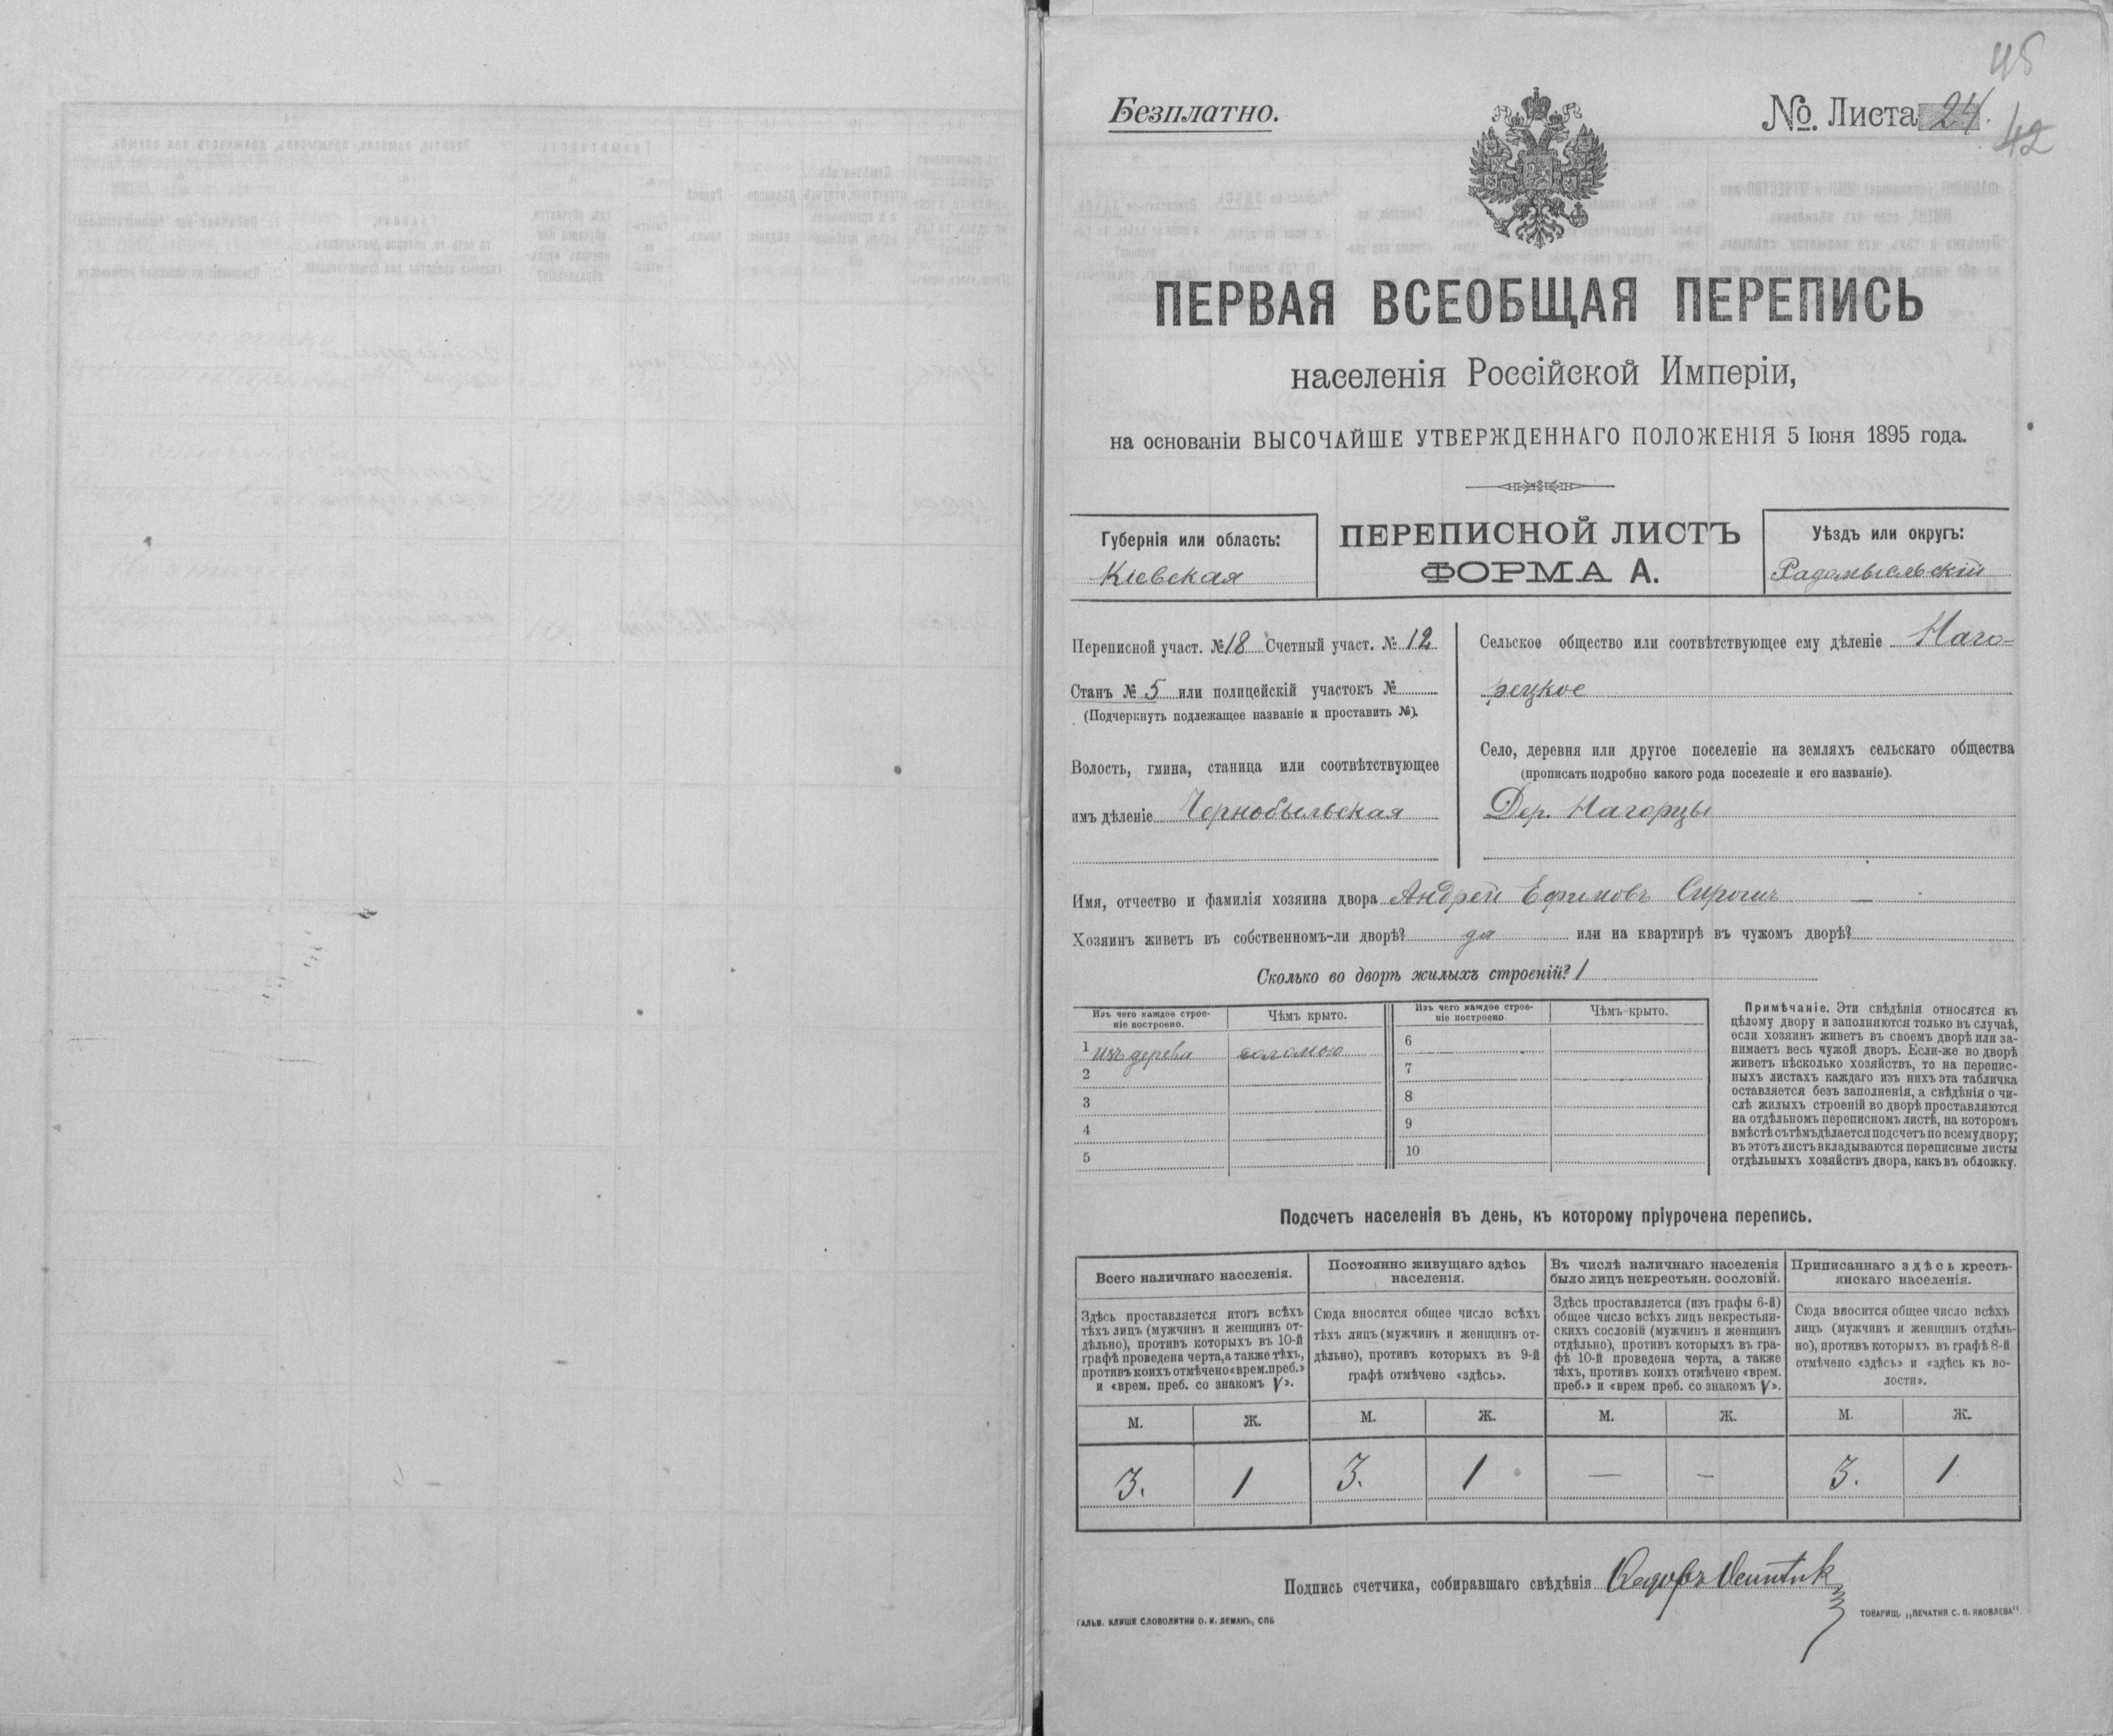 45
Безплатно.
№ Листа 24.
42
ПЕРВАЯ ВСЕОБЩАЯ ПЕРЕПИСЬ
населенія Россійской Имперіи,
на основаніи ВЫСОЧАЙШЕ УТВЕРЖДЕННАГО ПОЛОЖЕНІЯ 5 Іюня 1895 года.
Губернія или область:
Кіевская
ПЕРЕПИСНОЙ ЛИСТЪ
ФОРМА А.
Уѣздъ или округъ:
Радомысльскій
Переписной участ. № 18 Счетный участ. № 12
Станъ № 5 или полицейскій участокъ №
(Подчеркнуть подлежащее названіе и проставить №).
Волость, гмина, станица или соотвѣтствующее
имъ дѣленіе Чернобыльская
Сельское общество или соотвѣтствующее ему дѣленіе Наго-
рецкое
Село, деревня или другое поселеніе на земляхъ сельскаго общества
(прописать подробно какого рода поселеніе и его названіе).
Дер. Нагорцы
Имя, отчество и фамилія хозяина двора Андрей Ефимовъ
Хозяинъ живетъ въ собственномъ-ли дворѣ? да или на квартирѣ въ чужомъ дворѣ?
Сколько во дворѣ жилыхъ строеній? 1
Изъ чего каждое строе-
ніе построено.
Чѣмъ крыто.
1 изъ дерева соломою
2
3
4
5
Изъ чего каждое строе-
ніе построено.
Чѣмъ крыто.
6
7
8
9
10
Примѣчаніе. Эти свѣдѣнія относятся къ
цѣлому двору и заполняются только въ случаѣ,
если хозяинъ живетъ въ своемъ дворѣ или за-
нимаетъ весь чужой дворъ. Если-же во дворѣ
живетъ нѣсколько хозяйствъ, то на перепис-
ныхъ листахъ каждаго изъ нихъ эта табличка
оставляется безъ заполненія, а свѣдѣнія о чи-
слѣ жилыхъ строеній во дворѣ проставляются
на отдѣльномъ переписномъ листѣ, на которомъ
вмѣстѣ съ тѣмъ дѣлается подсчетъ по всему двору;
въ этотъ листъ вкладываются переписные листы
отдѣльныхъ хозяйствъ двора, какъ въ обложку.
Подсчетъ населенія въ день, къ которому пріурочена перепись.
Всего наличнаго населенія.
Здѣсь проставляется итогъ всѣхъ
тѣхъ лицъ (мужчинъ и женщинъ от-
дѣльно), противъ которыхъ въ 10-й
графѣ проведена черта, а также тѣхъ,
противъ коихъ отмѣчено «врем. преб.»
и «врем. преб. со знакомъ V».
М. Ж.
3. 1
Постоянно живущаго здѣсь
населенія.
Сюда вносится общее число всѣхъ
тѣхъ лицъ (мужчинъ и женщинъ от-
дѣльно), противъ которыхъ въ 9-й
графѣ отмѣчено «здѣсь».
М. Ж.
3. 1
Въ числѣ наличнаго населенія
было лицъ некрестьян. сословій.
Здѣсь проставляется (изъ графы 6-й)
общее число всѣхъ лицъ некрестьян-
скихъ сословій (мужчинъ и женщинъ
отдѣльно), противъ которыхъ въ гра-
фѣ 10-й проведена черта, а также
тѣхъ, противъ коихъ отмѣчено «врем.
преб.» и «врем преб. со знакомъ V».
М. Ж.
— —
Приписаннаго здѣсь кресть-
янскаго населенія.
Сюда вносится общее число всѣхъ
лицъ (мужчинъ и женщинъ отдѣль-
но), противъ которыхъ въ графѣ 8-й
отмѣчено «здѣсь» и «здѣсь къ во-
лости».
М. Ж.
3. 1
Подпись счетчика, собиравшаго свѣдѣнія
ГАЛЬВ. КЛИШЕ СЛОВОЛИТНИ О. И. ЛЕМАНЪ, СПБ
ТОВАРИЩ. „ПЕЧАТНЯ С. П. ЯКОВЛЕВА"